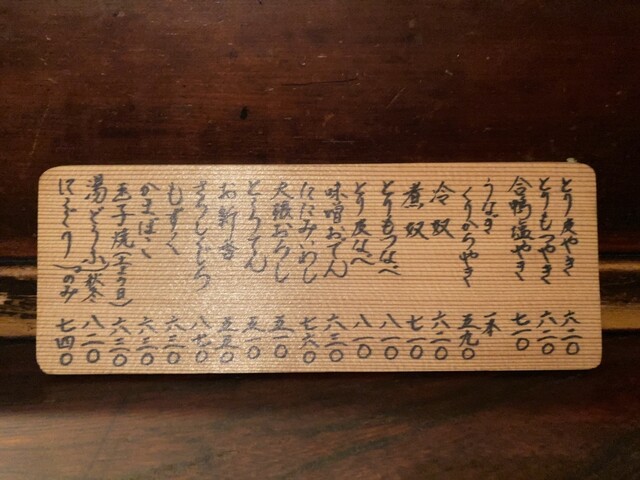 とり皮やき 六二〇
とりもつやき 六二〇
合鴨塩やき 七一〇
うなぎ 一本
くりからやき 五九〇
冷奴 六二〇
煮奴 七一〇
とりもつなべ 八一〇
とり皮なべ 八一〇
味噌おでん 六三〇
たたみいわし 七六〇
天張おろし 五一〇
ところてん 五一〇
お新香 五五〇
さらしくじら
もずく 六三〇
かまぼこ 六三〇
玉子焼(土ようの日) 六三〇
湯どうふ 秋冬 八二〇
にこごり のみ 七四〇